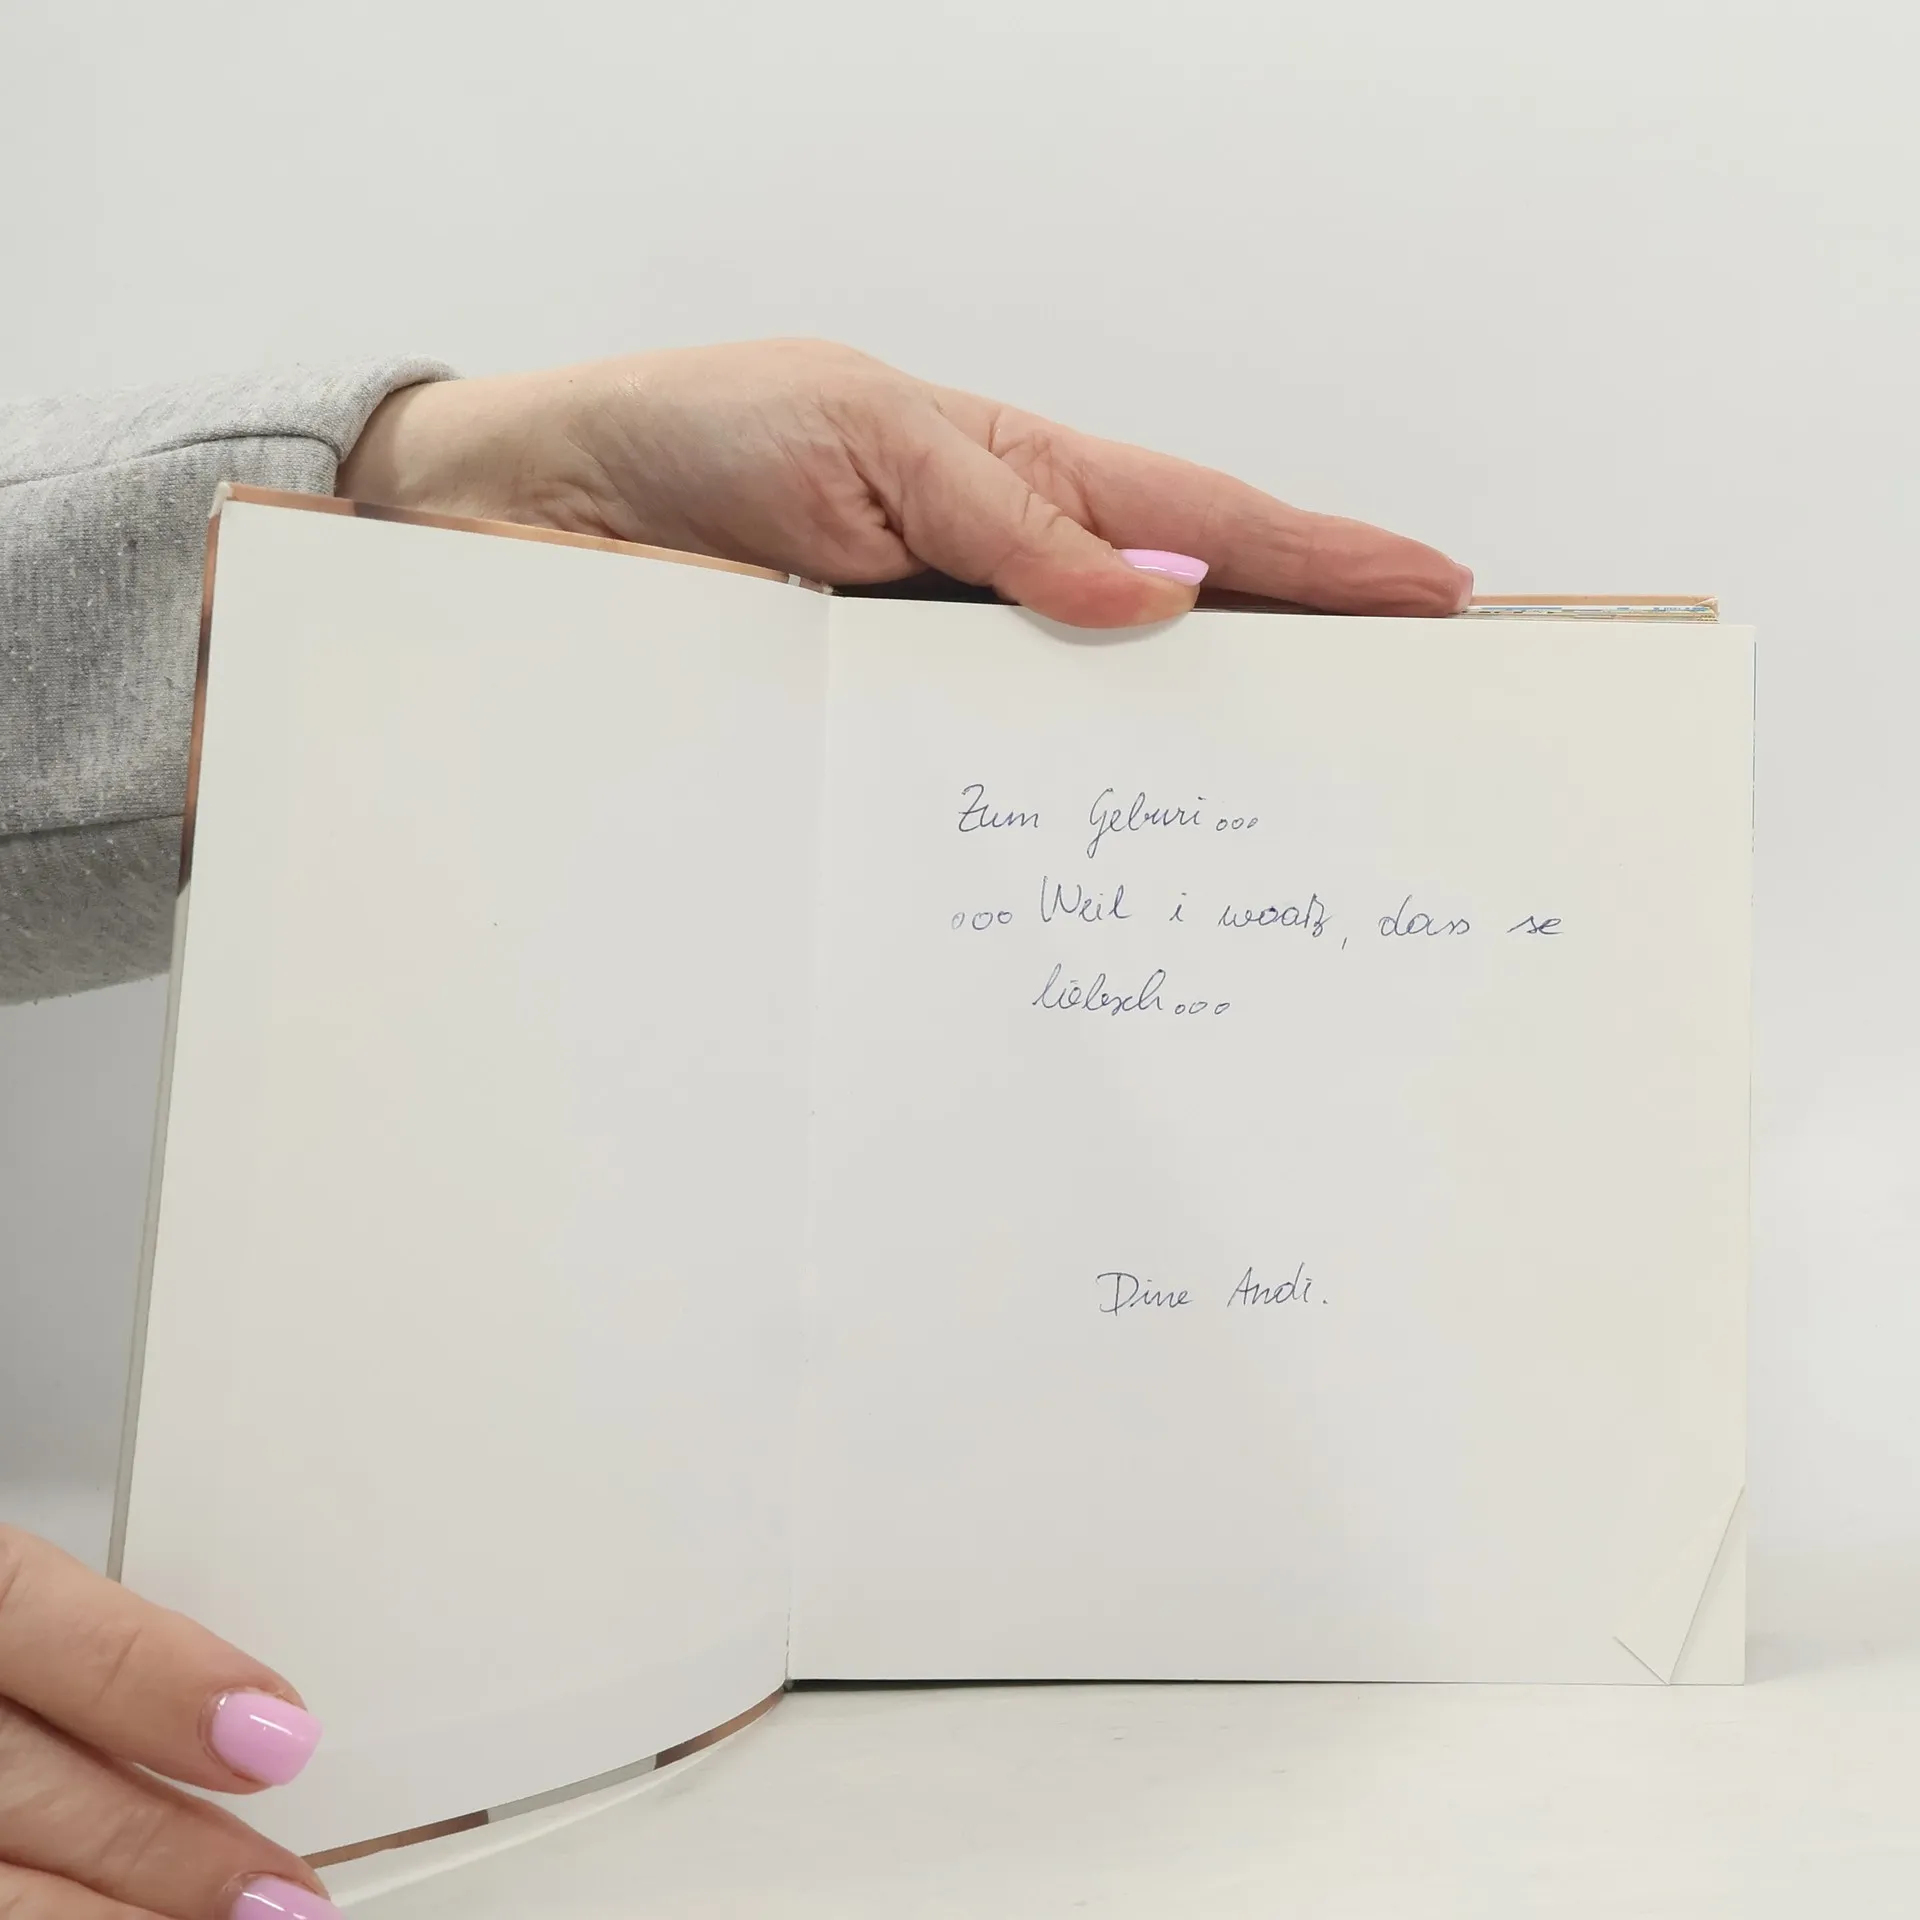 Zum Geburi...
...Weil i woaß, dass se
liebsch...
Dine Andi.